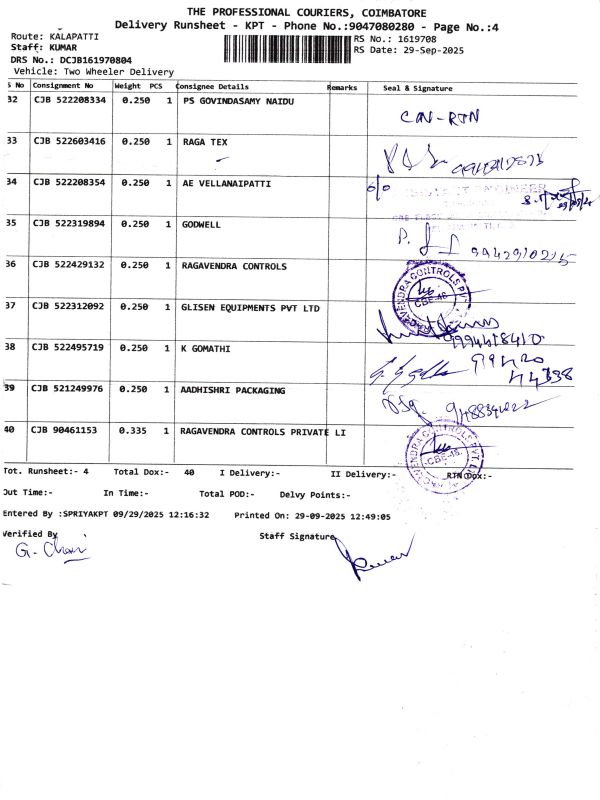 THE PROFESSIONAL COURIERS, COIMBATORE
Delivery Runsheet - KPT - Phone No.:9047080280 - Page No.:4
Route: KALAPATTI
RS No.: 1619708
Staff: KUMAR
RS Date: 29-Sep-2025
DRS No.: DCJB161970804
Vehicle: Two Wheeler Delivery
S No Consignment No Weight PCS Consignee Details Remarks Seal & Signature
32 CJB 522208334 0.250 1 PS GOVINDASAMY NAIDU CN-RTN
33 CJB 522603416 0.250 1 RAGA TEX
34 CJB 522208354 0.250 1 AE VELLANAIPATTI
35 CJB 522319894 0.250 1 GODWELL
36 CJB 522429132 0.250 1 RAGAVENDRA CONTROLS
37 CJB 522312092 0.250 1 GLISEN EQUIPMENTS PVT LTD
38 CJB 522495719 0.250 1 K GOMATHI
39 CJB 521249976 0.250 1 AADHISHRI PACKAGING
40 CJB 90461153 0.335 1 RAGAVENDRA CONTROLS PRIVATE LI
Tot. Runsheet:- 4 Total Dox:- 40 I Delivery:- II Delivery:- RTN Dox:-
Out Time:- In Time:- Total POD:- Delvy Points:-
Entered By :SPRIYAKPT 09/29/2025 12:16:32 Printed On: 29-09-2025 12:49:05
Verified By Staff Signature